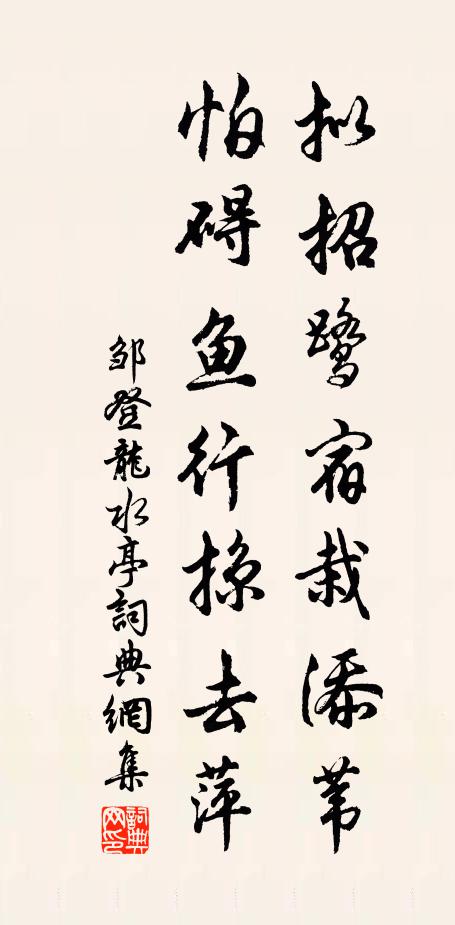 拟招鹭宿栽添苇
怕碍鱼行掠去萍
邹登龍水亭詞典網集
詞典网印